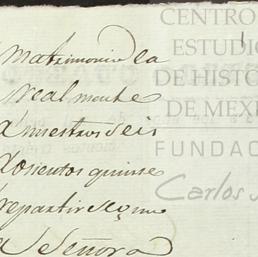 matrimonio ea
real mente
a nuestros seis
dosientos quinse
repartir se que
a Señora
CENTRO
ESTUDIO
DE HISTO
DE MEXI
FUNDAC
Carlos